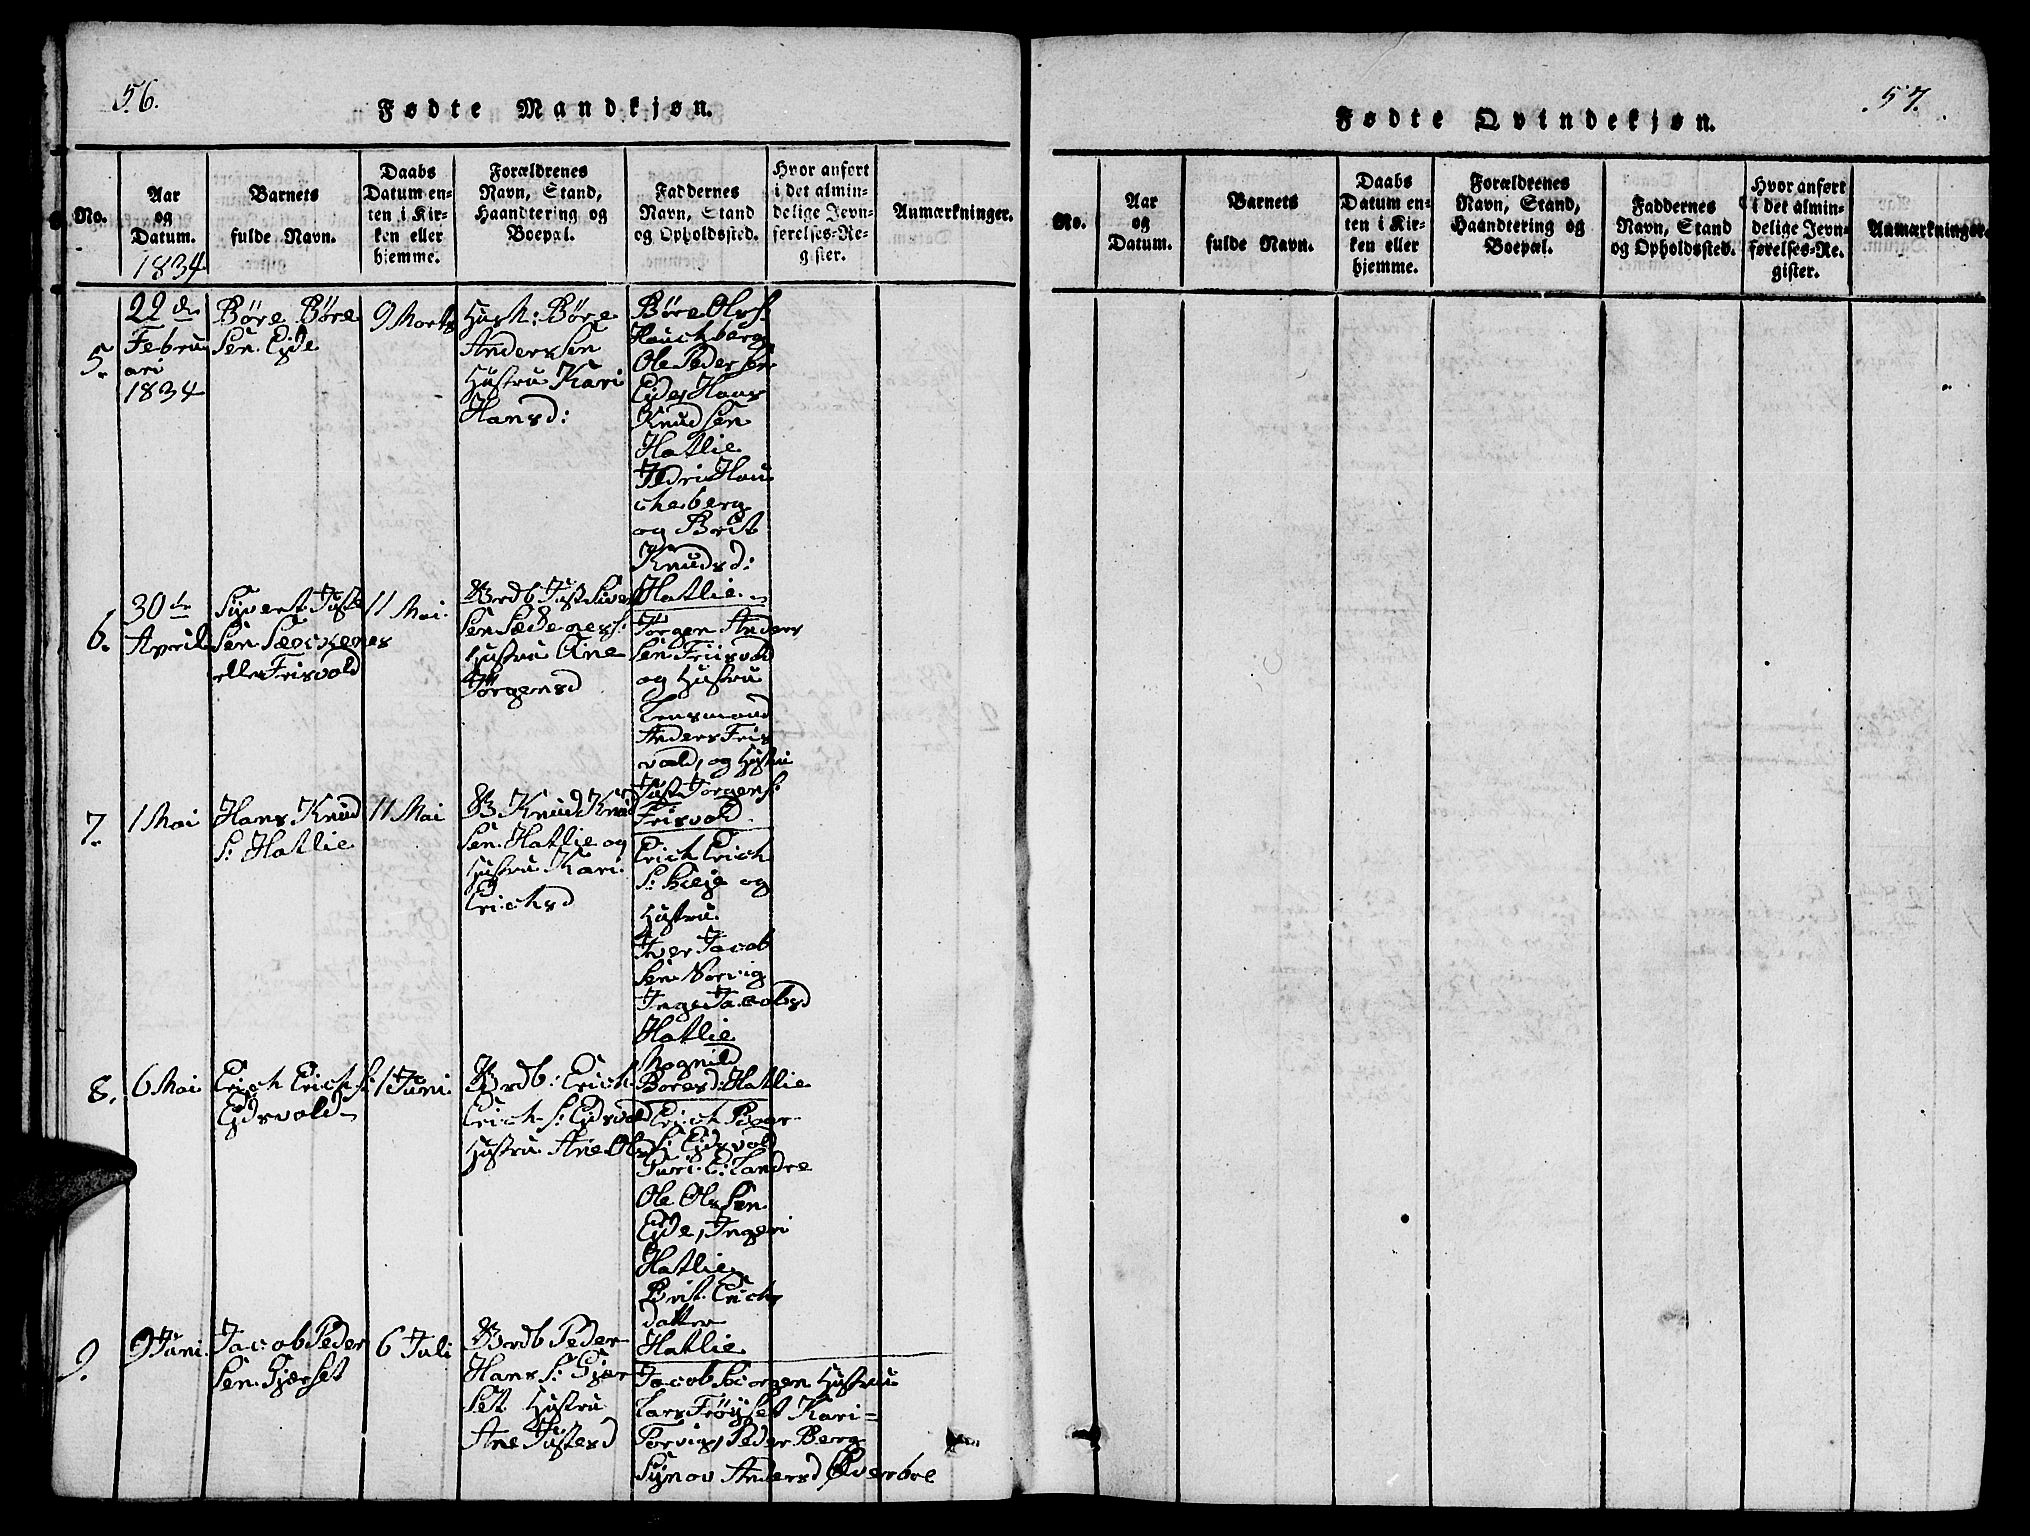 56.
Fødte Mandkjøn.
No.
Aar
og
Datum.
1834
Barnets
fulde Navn.
Daabs
Datum en-
ten i Kir-
ken eller
hjemme.
Forældrenes
Navn, Stand,
Haandtering og
Boepæl.
Faddernes
Navn, Stand
og Opholdssted.
Hvor anført
i det almin-
delige Jevn-
førelses-Re-
gister.
Anmærkninger.
5.
22de
Febru
ari
1834
Böre Böre
Sen Eide
9 Marts
Husm: Böre
Anders Sen
Hustru Kari
Hansd:
Böre Ols S:
Houchberg
Ole Peder Sen
Eide, Hans
Knud Sen
Hatlie
Hou
cheberg
og Borit
Knudsd:
Hatlie
6.
30de
April
Syvert Juste
Sen
eller Frisvold
11 Mai
Brdb Just Siver
Sen
Hustru Ane
Jörgensd
Jorgen Anders
Sen Friisvold
og Hustru
Anders Fris
vold, og Hustru
Just Jorgens S:
Frisvold
7.
1 Mai
Hans Knud
S: Hatlie
11 Mai
B Knud Knud
Sen Hatlie og
Hustru Kari
Erichsd
Erich Erich
S: og
Hustru
Iver Jacob
Sen Norvig
Inge Jacobsd
Hatlie
Ragnild
Boresd: Hatlie
8.
6 Mai
Erich Erich S:
Eidsvold
1 Juni
Brdb: Erich
Erich S: Eidsvold
Hustru Ane Ols
Erich Peder
S: Eidsvold
Guri E: Tandre
Ole Ols Sen
Eide, Ingeri
Hatlie
Brit Erichs
datter
Hatlie
9.
9 Juni
Jacob Peder
Sen Gjerset
6 Juli
Brdb Peder
Hans S: Gjer
Set Hustru
Ane Justesd
Jacob Hustru
Lars Kari
Torvig, Peder Berg
Synov Andersd Øverboe
57.
Fødte Qvindekjøn.
No.
Aar
og
Datum.
Barnets
fulde Navn.
Daabs
Datum en-
ten i Kir-
ken eller
hjemme.
Forældrenes
Navn, Stand,
Haandtering og
Boepæl.
Faddernes
Navn, Stand
og Opholdssted.
Hvor anført
i det almin-
delige Jevn-
førelses-Re-
gister.
Anmærkninger.